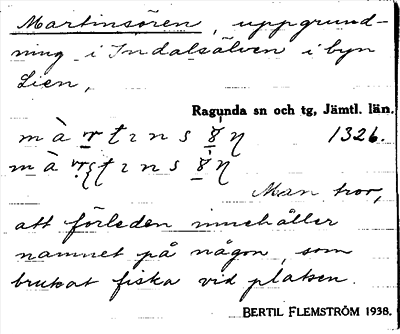 Martinsören, uppgrund-
ning i Indalsälven i byn
Lien,
Ragunda sn och tg, Jämtl. län.
1326.
Man tror,
att förleden innehåller
namnet på någon, som
brukat fiska vid platsen.
BERTIL FLEMSTRÖM 1938.